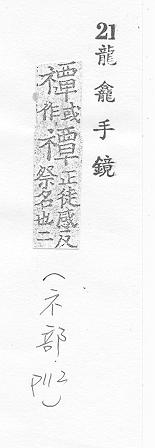 21龍龕手鏡
禫或作禫正徒感反祭名也二
（ネ部P112）